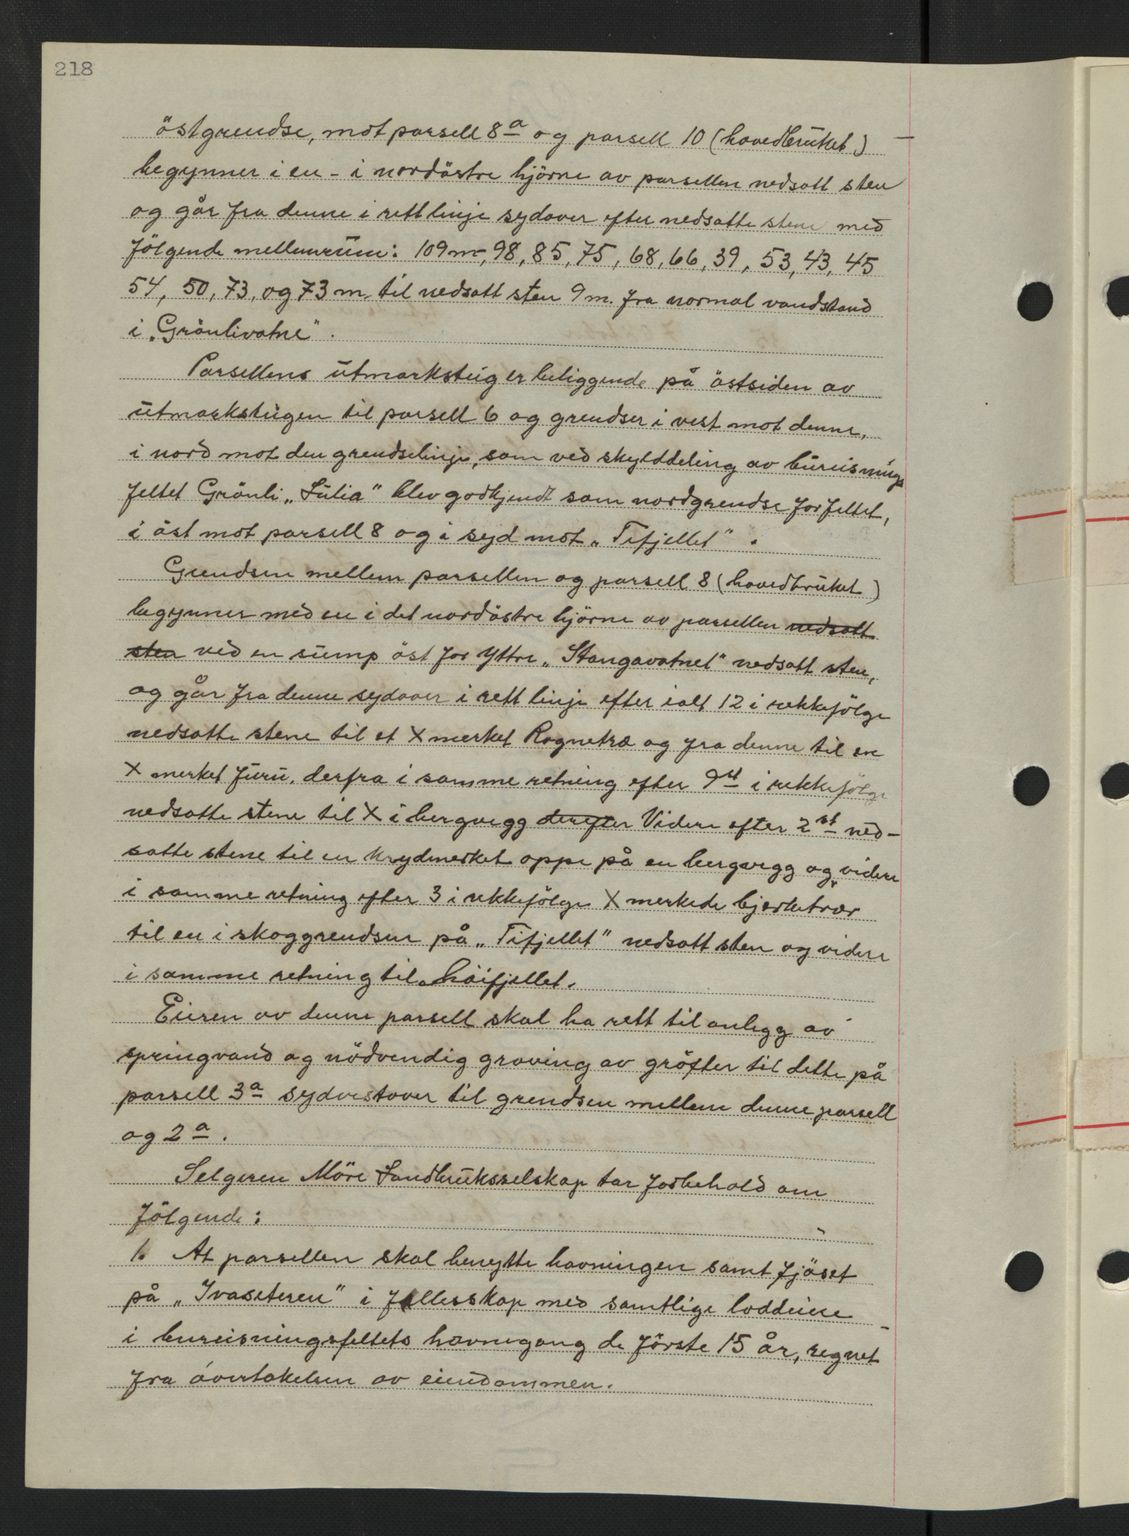 218
östgrendse, mot parsell 8a og parsell 10 (hovedbruket)
begynner i en - i nordöstre hjörne av parsellen nedsatt sten
og går fra denne i rett linje sydover efter nedsatte stene med
följende mellemrum: 109 m, 98, 85, 75, 68, 66, 39, 53, 43, 45
54, 50, 73, og 73 m, til nedsatt sten 9 m. fra normal vandstand
i „Grönlivatne".
Parsellens utmarksteig er beliggende på östsiden av
utmarksteigen til parsell 6 og grendser i vest mot denne,
i nord mot den grendselinje, som ved skylddeling av bureisnings
feltet Grönli „Lülia" blev godkjendt som nordgrendse for feltet,
i öst mot parsell 8 og i syd mot „Tifjellet".
Grendsen mellem parsellen og parsell 8 (hovedbruket)
begynner med en i det nordöstre hjörne av parsellen nedsatt
sten ved en sump öst for Yttre „Stangavatnet" nedsatt sten,
og går fra denne sydover i rett linje efter ialt 12 i rekkefölge
nedsatte stene til et X merket Rognetræ og fra denne til en
X merket Furu, derfra i samme retning efter 9 st i rekkefölge
nedsatte stene til X i bergvegg derefter Videre efter 2 st ned-
satte stene til en krydmerket oppe på en bergvegg og videre
i samme retning efter 3 i rekkefölge X merkede bjerketrær
til en i skoggrendsen på „Tifjellet" nedsatt sten og videre
i samme retning til höifjellet.
Eieren av denne parsell skal ha rett til anlegg av
springvand og nödvendig graving av gröfter til dette på
parsell 3a sydvestover til grendsen mellem denne parsell
og 2a.
Selgeren Möre Landbruksselskap tar forbehold om
fölgende:
1. At parsellen skal benytte havningen samt fjöset
på „Ivaseteren" i fellesskap med samtlige loddeiere
i bureisningsfeltets havnegang de förste 15 år, regnet
fra overtakelsen av eiendommen.